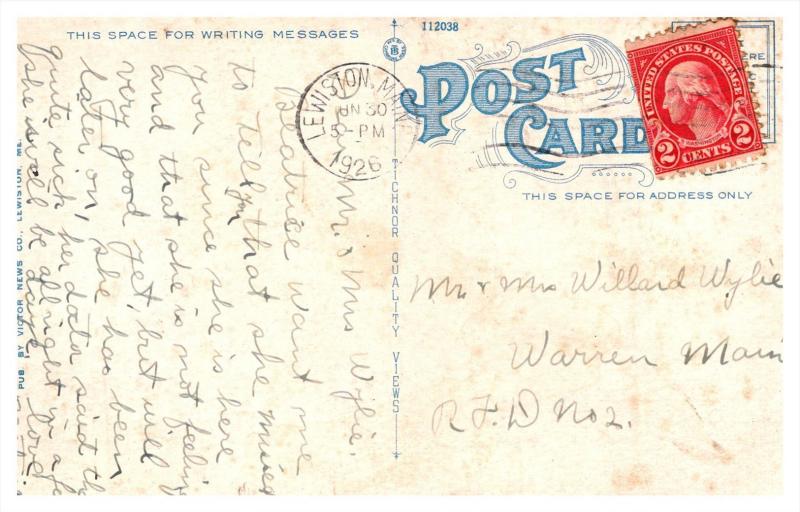 THIS SPACE FOR WRITING MESSAGES
112038
POST
CARD
LEWISTON, M
JUN 30
5 - PM
1926
UNITED STATES POSTAGE
WASHINGTON
2 CENTS 2
THIS SPACE FOR ADDRESS ONLY
TICHNOR QUALITY VIEWS
PUB. BY VICTOR NEWS CO., LEWISTON, ME.
Mr & Mrs Wylie.
Beatrice want me
to tell you that she misses
you since she is here
and that she is not feeling
very good yet, but will
later on, she has been
quite sick, her dotor said th
she is well be allright in a fe
days, love
Mr & Mrs Willard Wylie
Warren Main
R.F.D No 2.